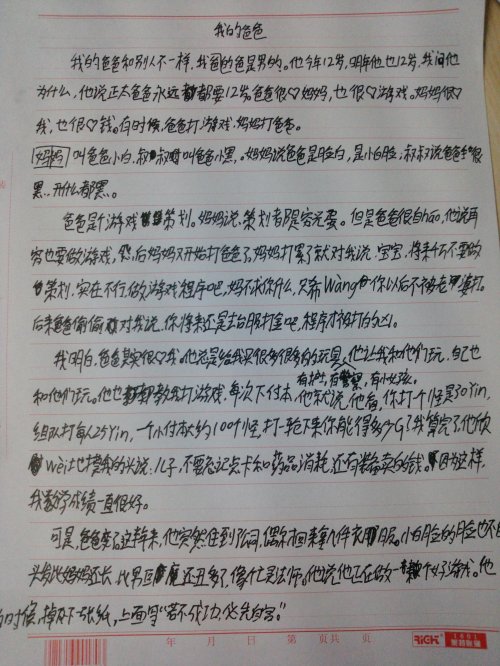 我的爸爸
我的爸爸和别人不一样,我的爸是男的。他今年12岁,明年他也12岁,我问他
为什么,他说正太爸爸永远都要12岁。爸爸很♡妈妈,也很♡游戏。妈妈很♡
我,也很♡钱。有时候,爸爸打游戏,妈妈打爸爸。
妈妈叫爸爸小白,叔叔叫爸爸小黑。妈妈说爸爸是脸白,是小白脸,叔叔说爸爸手很
黑,开什么都黑。
爸爸是个游戏策划。妈妈说,策划都是穷光蛋。但是爸爸很自hao,他说再
穷也要做游戏,然后妈妈又开始打爸爸了,妈妈打累了就对我说:宝宝,将来千万不要做
策划,实在不行,做游戏程序吧,妈不求你什么,只希Wàng你以后不被老婆打。
后来爸爸偷偷对我说,你将来还是去台服打金吧,程序才被打的凶。
我明白,爸爸其实很♡我。他总是给我买很多很多的玩具,他让我和他们玩,自己也
有护士,有警察,有小女孩。
和他们玩。他也教我打游戏,每次下付本,他就说,他看,你打个怪是30Yin,
组队打每人25Yin,一个小付本大约100个怪,打一轮下来你能得多少G?我算完了,他欣
Wèi地摸我的头说:儿子,不要忘记点卡和药品消耗,还有装备卖的钱。因为这样,
我数学成绩一直很好。
可是,爸爸变了,这样来,他突然住到了公司,偶尔回来拿几件衣服。小白脸的脸也不白
头发比妈妈还长,比那回魔还丑多了,像个亡灵法师。他说他正在做一款个好游戏。他
的时候,掉下一张纸,上面写"若不成功,必先自宫。"
年 月 日 第 页共 页
RiGH
1601